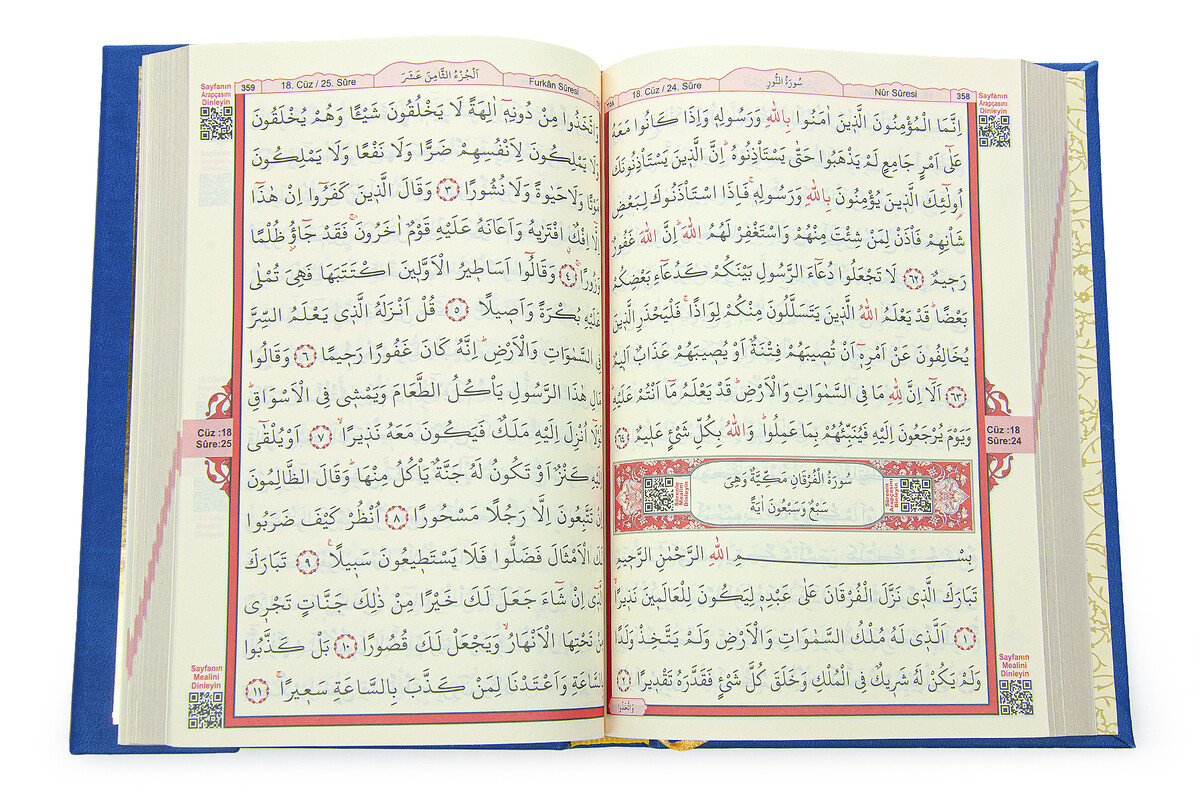 358
Nûr Sûresi
سُورَةُ النُّورِ
18. Cüz / 24. Sûre
Sayfanın
Arapçasını
Dinleyin
اِنَّمَا الْمُؤْمِنُونَ الَّذٖينَ اٰمَنُوا بِاللّٰهِ وَرَسُولِهٖ وَاِذَا كَانُوا مَعَهُ
عَلٰٓى اَمْرٍ جَامِعٍ لَمْ يَذْهَبُوا حَتّٰى يَسْتَأْذِنُوهُؕ اِنَّ الَّذٖينَ يَسْتَأْذِنُونَكَ
اُولٰٓئِكَ الَّذٖينَ يُؤْمِنُونَ بِاللّٰهِ وَرَسُولِهٖۚ فَاِذَا اسْتَأْذَنُوكَ لِبَعْضِ
شَأْنِهِمْ فَأْذَنْ لِمَنْ شِئْتَ مِنْهُمْ وَاسْتَغْفِرْ لَهُمُ اللّٰهَؕ اِنَّ اللّٰهَ غَفُورٌ
رَحٖيمٌ ﴿٦٢﴾ لَا تَجْعَلُوا دُعَٓاءَ الرَّسُولِ بَيْنَكُمْ كَدُعَٓاءِ بَعْضِكُمْ
بَعْضًاؕ قَدْ يَعْلَمُ اللّٰهُ الَّذٖينَ يَتَسَلَّلُونَ مِنْكُمْ لِوَاذًاۚ فَلْيَحْذَرِ الَّذٖينَ
يُخَالِفُونَ عَنْ اَمْرِهٖٓ اَنْ تُصٖيبَهُمْ فِتْنَةٌ اَوْ يُصٖيبَهُمْ عَذَابٌ اَلٖيمٌ
﴿٦٣﴾ اَلَٓا اِنَّ لِلّٰهِ مَا فِي السَّمٰوَاتِ وَالْاَرْضِؕ قَدْ يَعْلَمُ مَٓا اَنْتُمْ عَلَيْهِؕ
وَيَوْمَ يُرْجَعُونَ اِلَيْهِ فَيُنَبِّئُهُمْ بِمَا عَمِلُواؕ وَاللّٰهُ بِكُلِّ شَيْءٍ عَلٖيمٌ ﴿٦٤﴾
Cüz :18
Sûre:24
سُورَةُ الْفُرْقَانِ مَكِّيَّةٌ وَهِيَ
سَبْعٌ وَسَبْعُونَ اٰيَةً
بِسْمِ اللّٰهِ الرَّحْمٰنِ الرَّحٖيمِ
تَبَارَكَ الَّذٖي نَزَّلَ الْفُرْقَانَ عَلٰى عَبْدِهٖ لِيَكُونَ لِلْعَالَمٖينَ نَذٖيرًا
﴿١﴾ اَلَّذٖي لَهُ مُلْكُ السَّمٰوَاتِ وَالْاَرْضِ وَلَمْ يَتَّخِذْ وَلَدًا
وَلَمْ يَكُنْ لَهُ شَرٖيكٌ فِي الْمُلْكِ وَخَلَقَ كُلَّ شَيْءٍ فَقَدَّرَهُ تَقْدٖيرًا ﴿٢﴾
وَاتَّخَذُوا
Sayfanın
Mealini
Dinleyin
Furkân Sûresi
اَلْجُزْءُ الثَّامِنَ عَشَرَ
18. Cüz / 25. Sûre
359
Sayfanın
Arapçasını
Dinleyin
وَاتَّخَذُوا مِنْ دُونِهٖٓ اٰلِهَةً لَا يَخْلُقُونَ شَيْـًٔا وَهُمْ يُخْلَقُونَ
وَلَا يَمْلِكُونَ لِاَنْفُسِهِمْ ضَرًّا وَلَا نَفْعًا وَلَا يَمْلِكُونَ
مَوْتًا وَلَا حَيٰوةً وَلَا نُشُورًا ﴿٣﴾ وَقَالَ الَّذٖينَ كَفَرُٓوا اِنْ هٰذَٓا
اِلَّٓا اِفْكٌۨ افْتَرٰيهُ وَاَعَانَهُ عَلَيْهِ قَوْمٌ اٰخَرُونَۚ فَقَدْ جَٓاؤُ ظُلْمًا
وَزُورًاۚ ﴿٤﴾ وَقَالُٓوا اَسَاطٖيرُ الْاَوَّلٖينَ اكْتَتَبَهَا فَهِيَ تُمْلٰى
عَلَيْهِ بُكْرَةً وَاَصٖيلًا ﴿٥﴾ قُلْ اَنْزَلَهُ الَّذٖي يَعْلَمُ السِّرَّ
فِي السَّمٰوَاتِ وَالْاَرْضِؕ اِنَّهُ كَانَ غَفُورًا رَحٖيمًا ﴿٦﴾ وَقَالُوا
مَالِ هٰذَا الرَّسُولِ يَأْكُلُ الطَّعَامَ وَيَمْشٖي فِي الْاَسْوَاقِؕ
لَوْلَٓا اُنْزِلَ اِلَيْهِ مَلَكٌ فَيَكُونَ مَعَهُ نَذٖيرًاۙ ﴿٧﴾ اَوْ يُلْقٰٓى
اِلَيْهِ كَنْزٌ اَوْ تَكُونُ لَهُ جَنَّةٌ يَأْكُلُ مِنْهَاؕ وَقَالَ الظَّالِمُونَ
اِنْ تَتَّبِعُونَ اِلَّا رَجُلًا مَسْحُورًا ﴿٨﴾ اُنْظُرْ كَيْفَ ضَرَبُوا
لَكَ الْاَمْثَالَ فَضَلُّوا فَلَا يَسْتَطٖيعُونَ سَبٖيلًاۚ ﴿٩﴾ تَبَارَكَ
الَّذٖٓي اِنْ شَٓاءَ جَعَلَ لَكَ خَيْرًا مِنْ ذٰلِكَ جَنَّاتٍ تَجْرٖي
مِنْ تَحْتِهَا الْاَنْهَارُۙ وَيَجْعَلْ لَكَ قُصُورًا ﴿١٠﴾ بَلْ كَذَّبُوا
بِالسَّاعَةِ وَاَعْتَدْنَا لِمَنْ كَذَّبَ بِالسَّاعَةِ سَعٖيرًاۚ ﴿١١﴾
Cüz :18
Sûre:25
Sayfanın
Mealini
Dinleyin